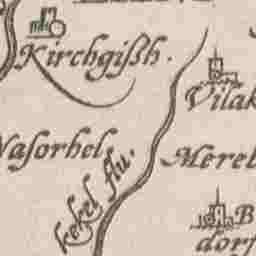 Kirchgißh.
Vilak
Vasorhel
Merel
kekel flu.
B
dorf